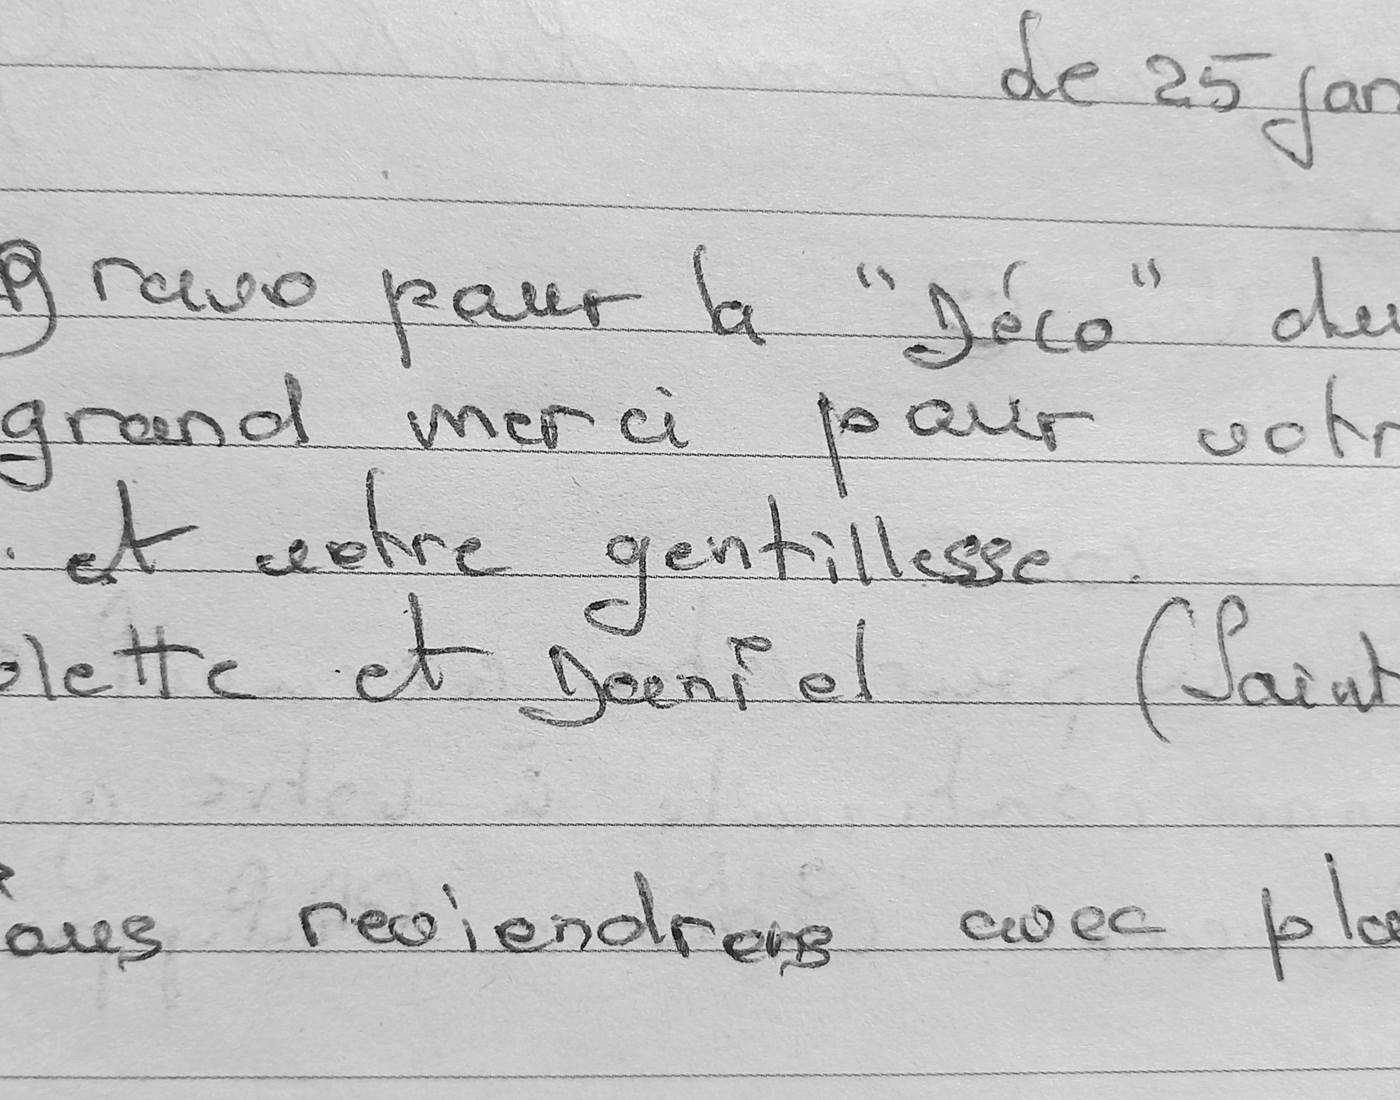 de 25 jan
Bravo pour la "Déco" du
grand merci pour votr
. et votre gentillesse.
olette et Daniel (Saint
ous reviendrons avec pla